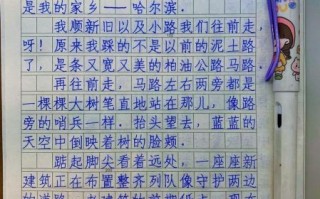 是我的家乡——哈尔滨.
我顺新旧以及小路我们往前走,
呀!原来我踩的不是以前的泥土路
了,是条又宽又美的柏油公路马路.
再往前走,马路左右两旁都是
一棵棵大树笔直地站在那儿,像路
旁的哨兵一样.抬头望去,蓝蓝的
天空中倒映着树的脸颊.
踮起脚尖看着远处,一座座新
建筑正在布置整齐列队像守护两边